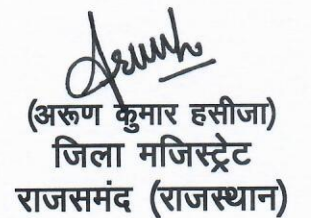 (अरूण कुमार हसीजा)
जिला मजिस्ट्रेट
राजसमंद (राजस्थान)